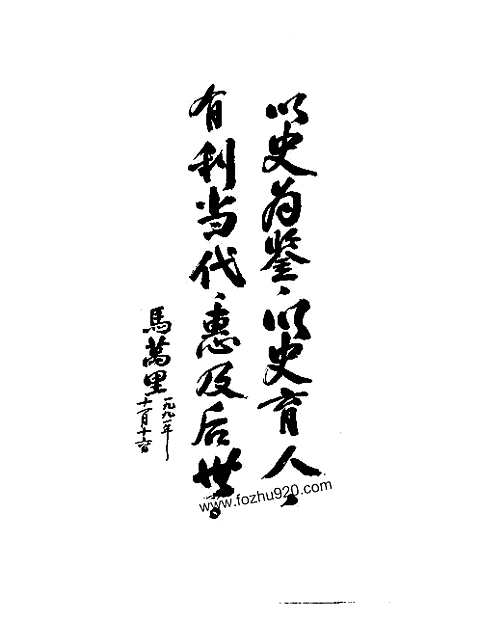 以史为鉴、以史育人。
有利当代、惠及后世。
馬萬里
一九九一年
十一月十六日
www.fozhu920.com